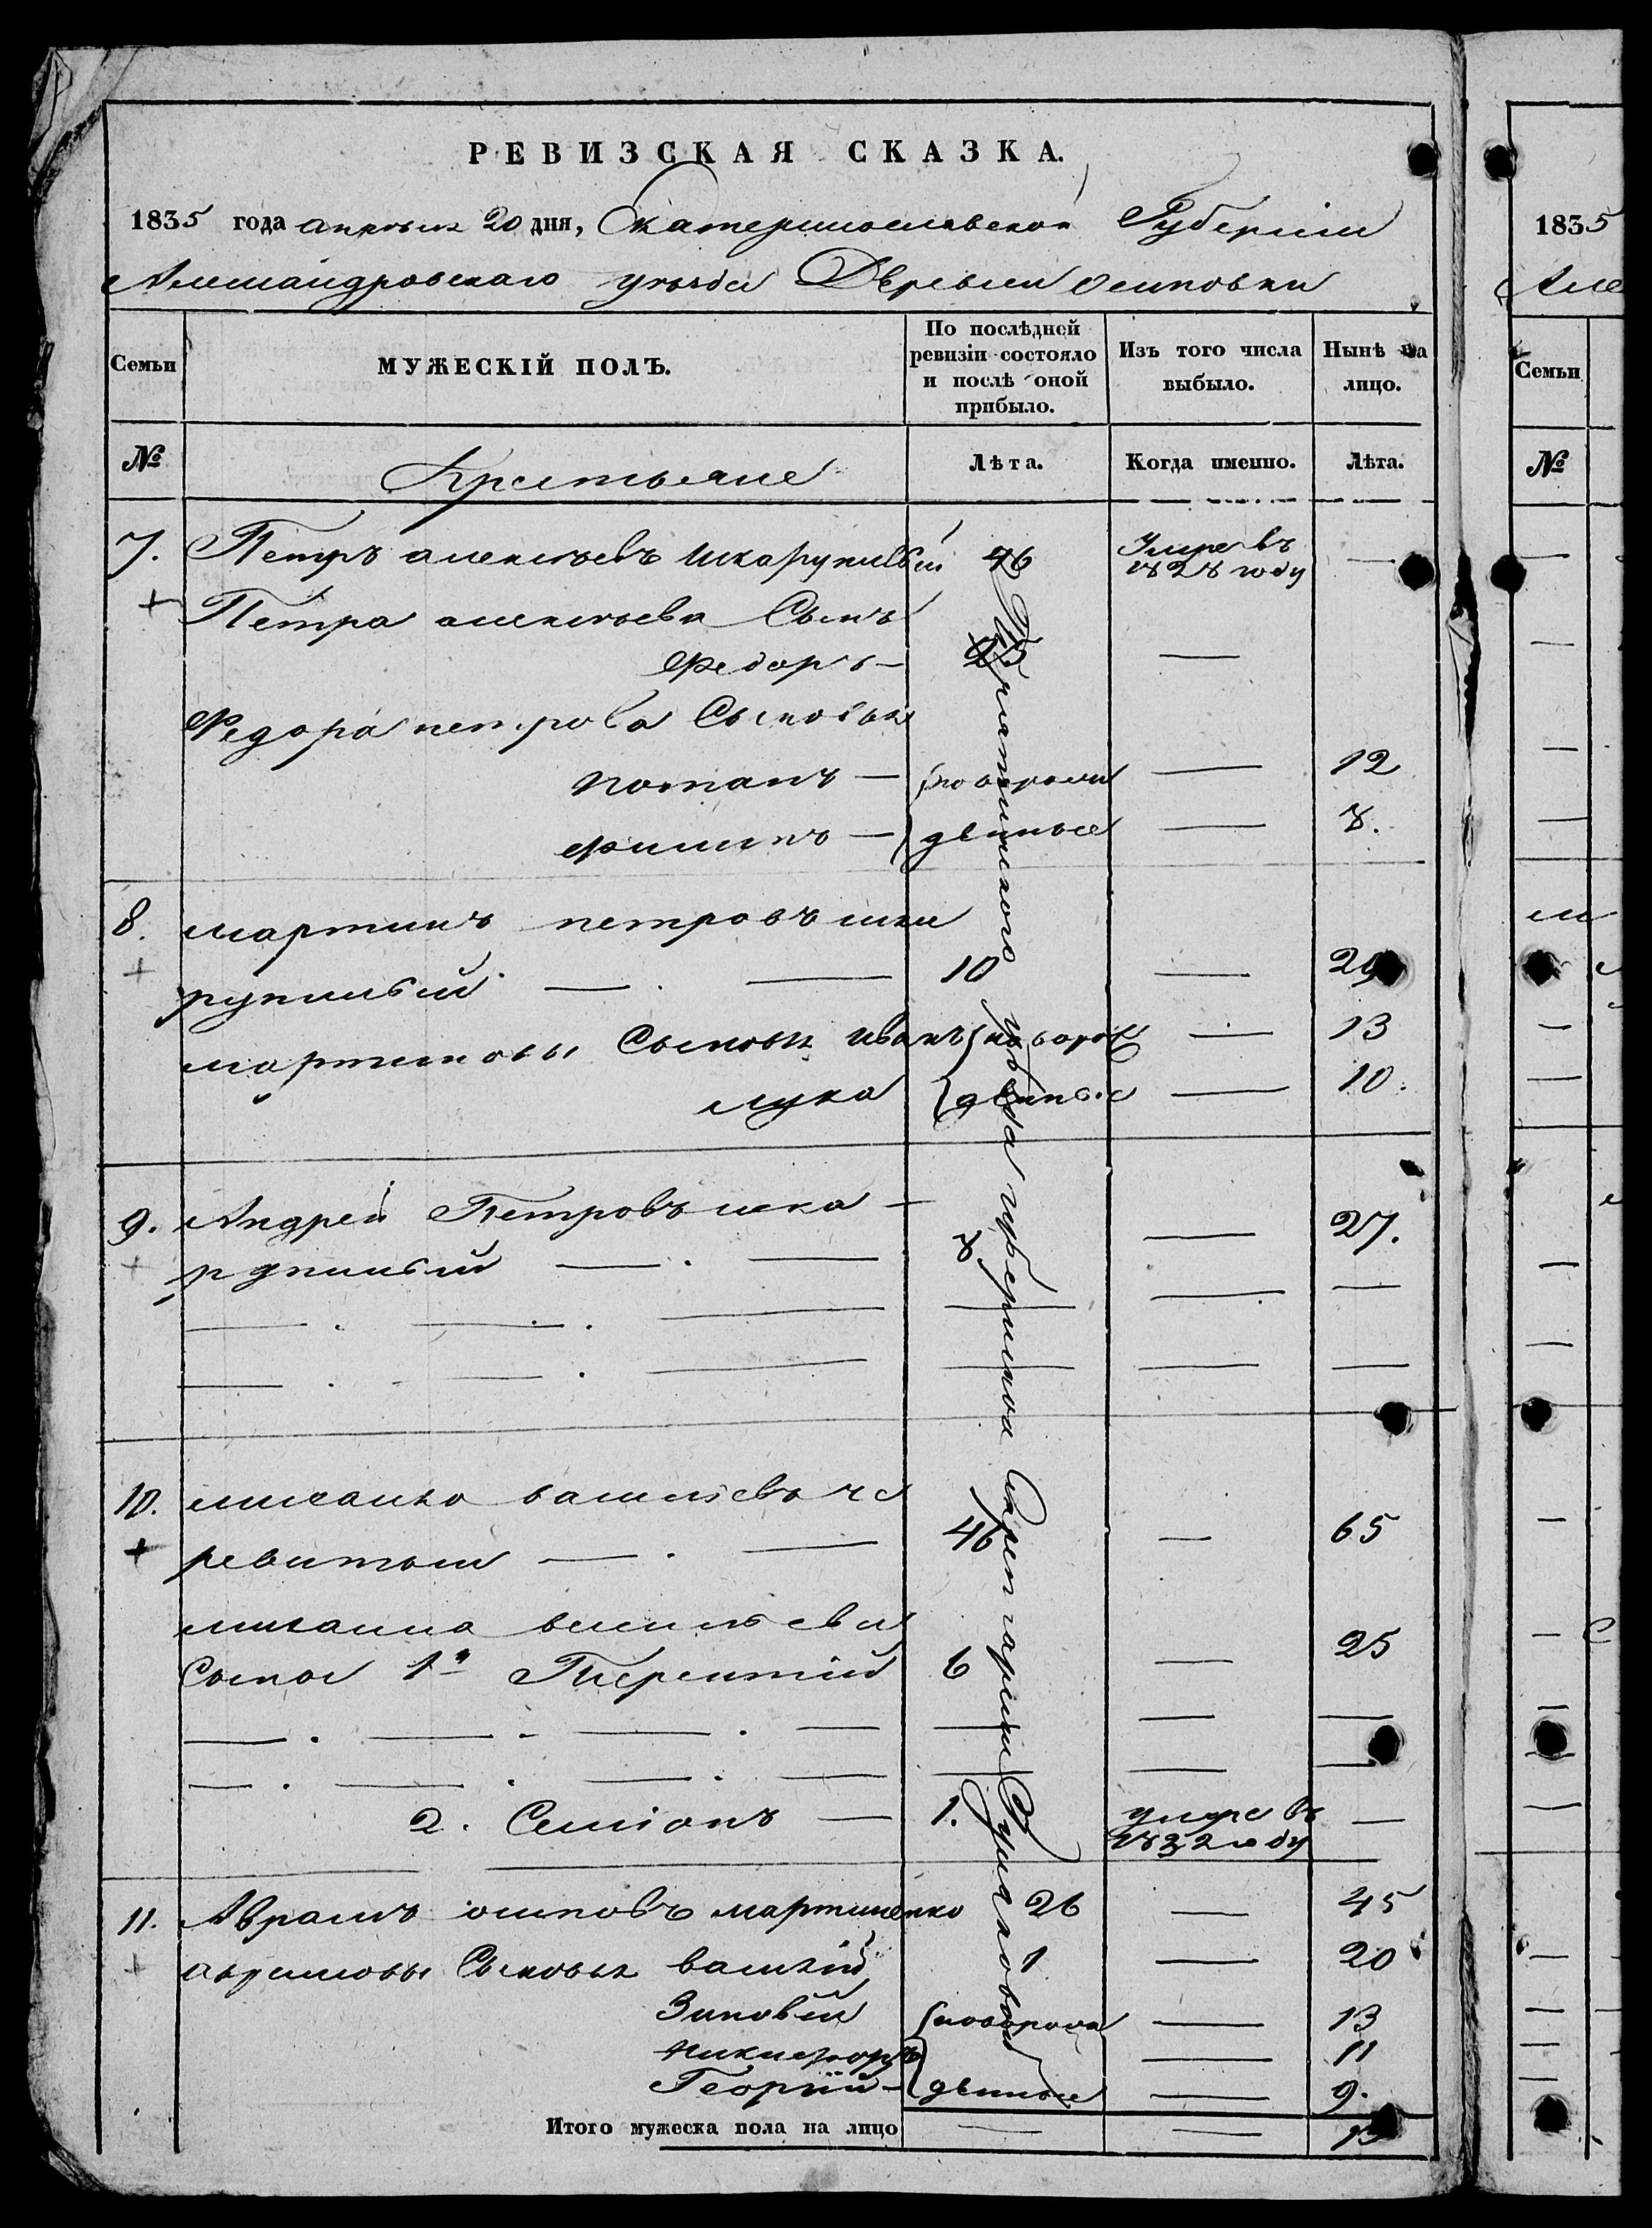 РЕВИЗСКАЯ СКАЗКА.
1835 года апреля 20 дня, Екатеринославской Губерніи
Александровскаго уѣзда Деревни осиповки
Семьи
МУЖЕСКІЙ ПОЛЪ.
По послѣдней ревизіи состояло и послѣ оной прибыло.
Изъ того числа выбыло.
Нынѣ на лицо.
№
Крестьяне
Лѣта.
Когда именно.
Лѣта.
7. Петръ алексѣевъ шкарупилый 46 Умре въ 1828 году —
Петра алексѣева Сынъ
Федоръ — —
Федора петрова Сыновья
потапъ — новорож — 12
филипъ — денные — 8.
8. мартинъ петровъ шка
рупилый — . — 10 — 29
мартиновы Сыновья иванъ новорож — 13
лука денные — 10.
9. Андрей Петровъ шка —
рупилый — . — 8 — 27.
10. михайло василіевъ че
ревитый — . — 46 — 65
михаила василіева
Сыновья 1й Терентій 6 — 25
2. Симіонъ — 1. умре въ 1832 году —
11. Аврамъ осиповъ мартиненко 26 — 45
аврамовы Сыновья василій 1 — 20
Зиновій новорож — 13
никифоръ — 11
Георгій — денные — 9.
Итого мужеска пола на лицо — — 13
уѣзда
1835
Але
Семьи
№